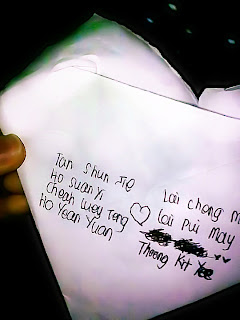 Tan Shun Jie
Ho Suan Yi
Cheah Wey Teng
Ho Yean Yuan
Lai Chong M
Lai Pui May
Thoong Kit Yee